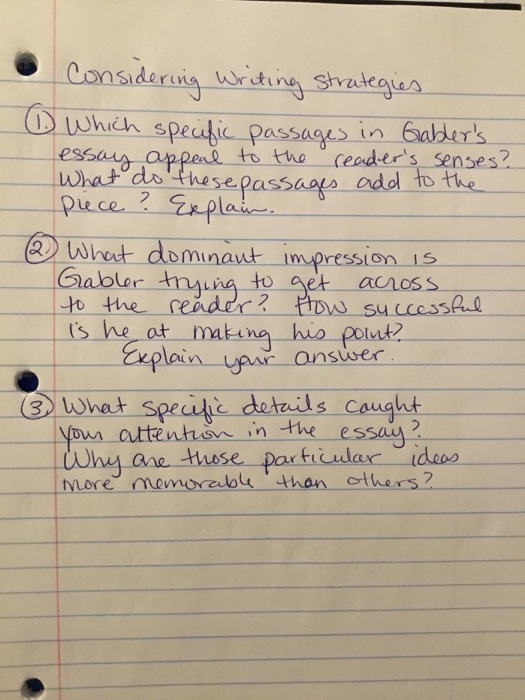 Considering Writing Strategies
① Which specific passages in Gabler's
essay appeal to the reader's senses?
What do these passages add to the
piece? Explain.
② What dominant impression is
Gabler trying to get across
to the reader? How successful
is he at making his point?
Explain your answer.
③ What specific details caught
your attention in the essay?
Why are those particular ideas
more memorable than others?